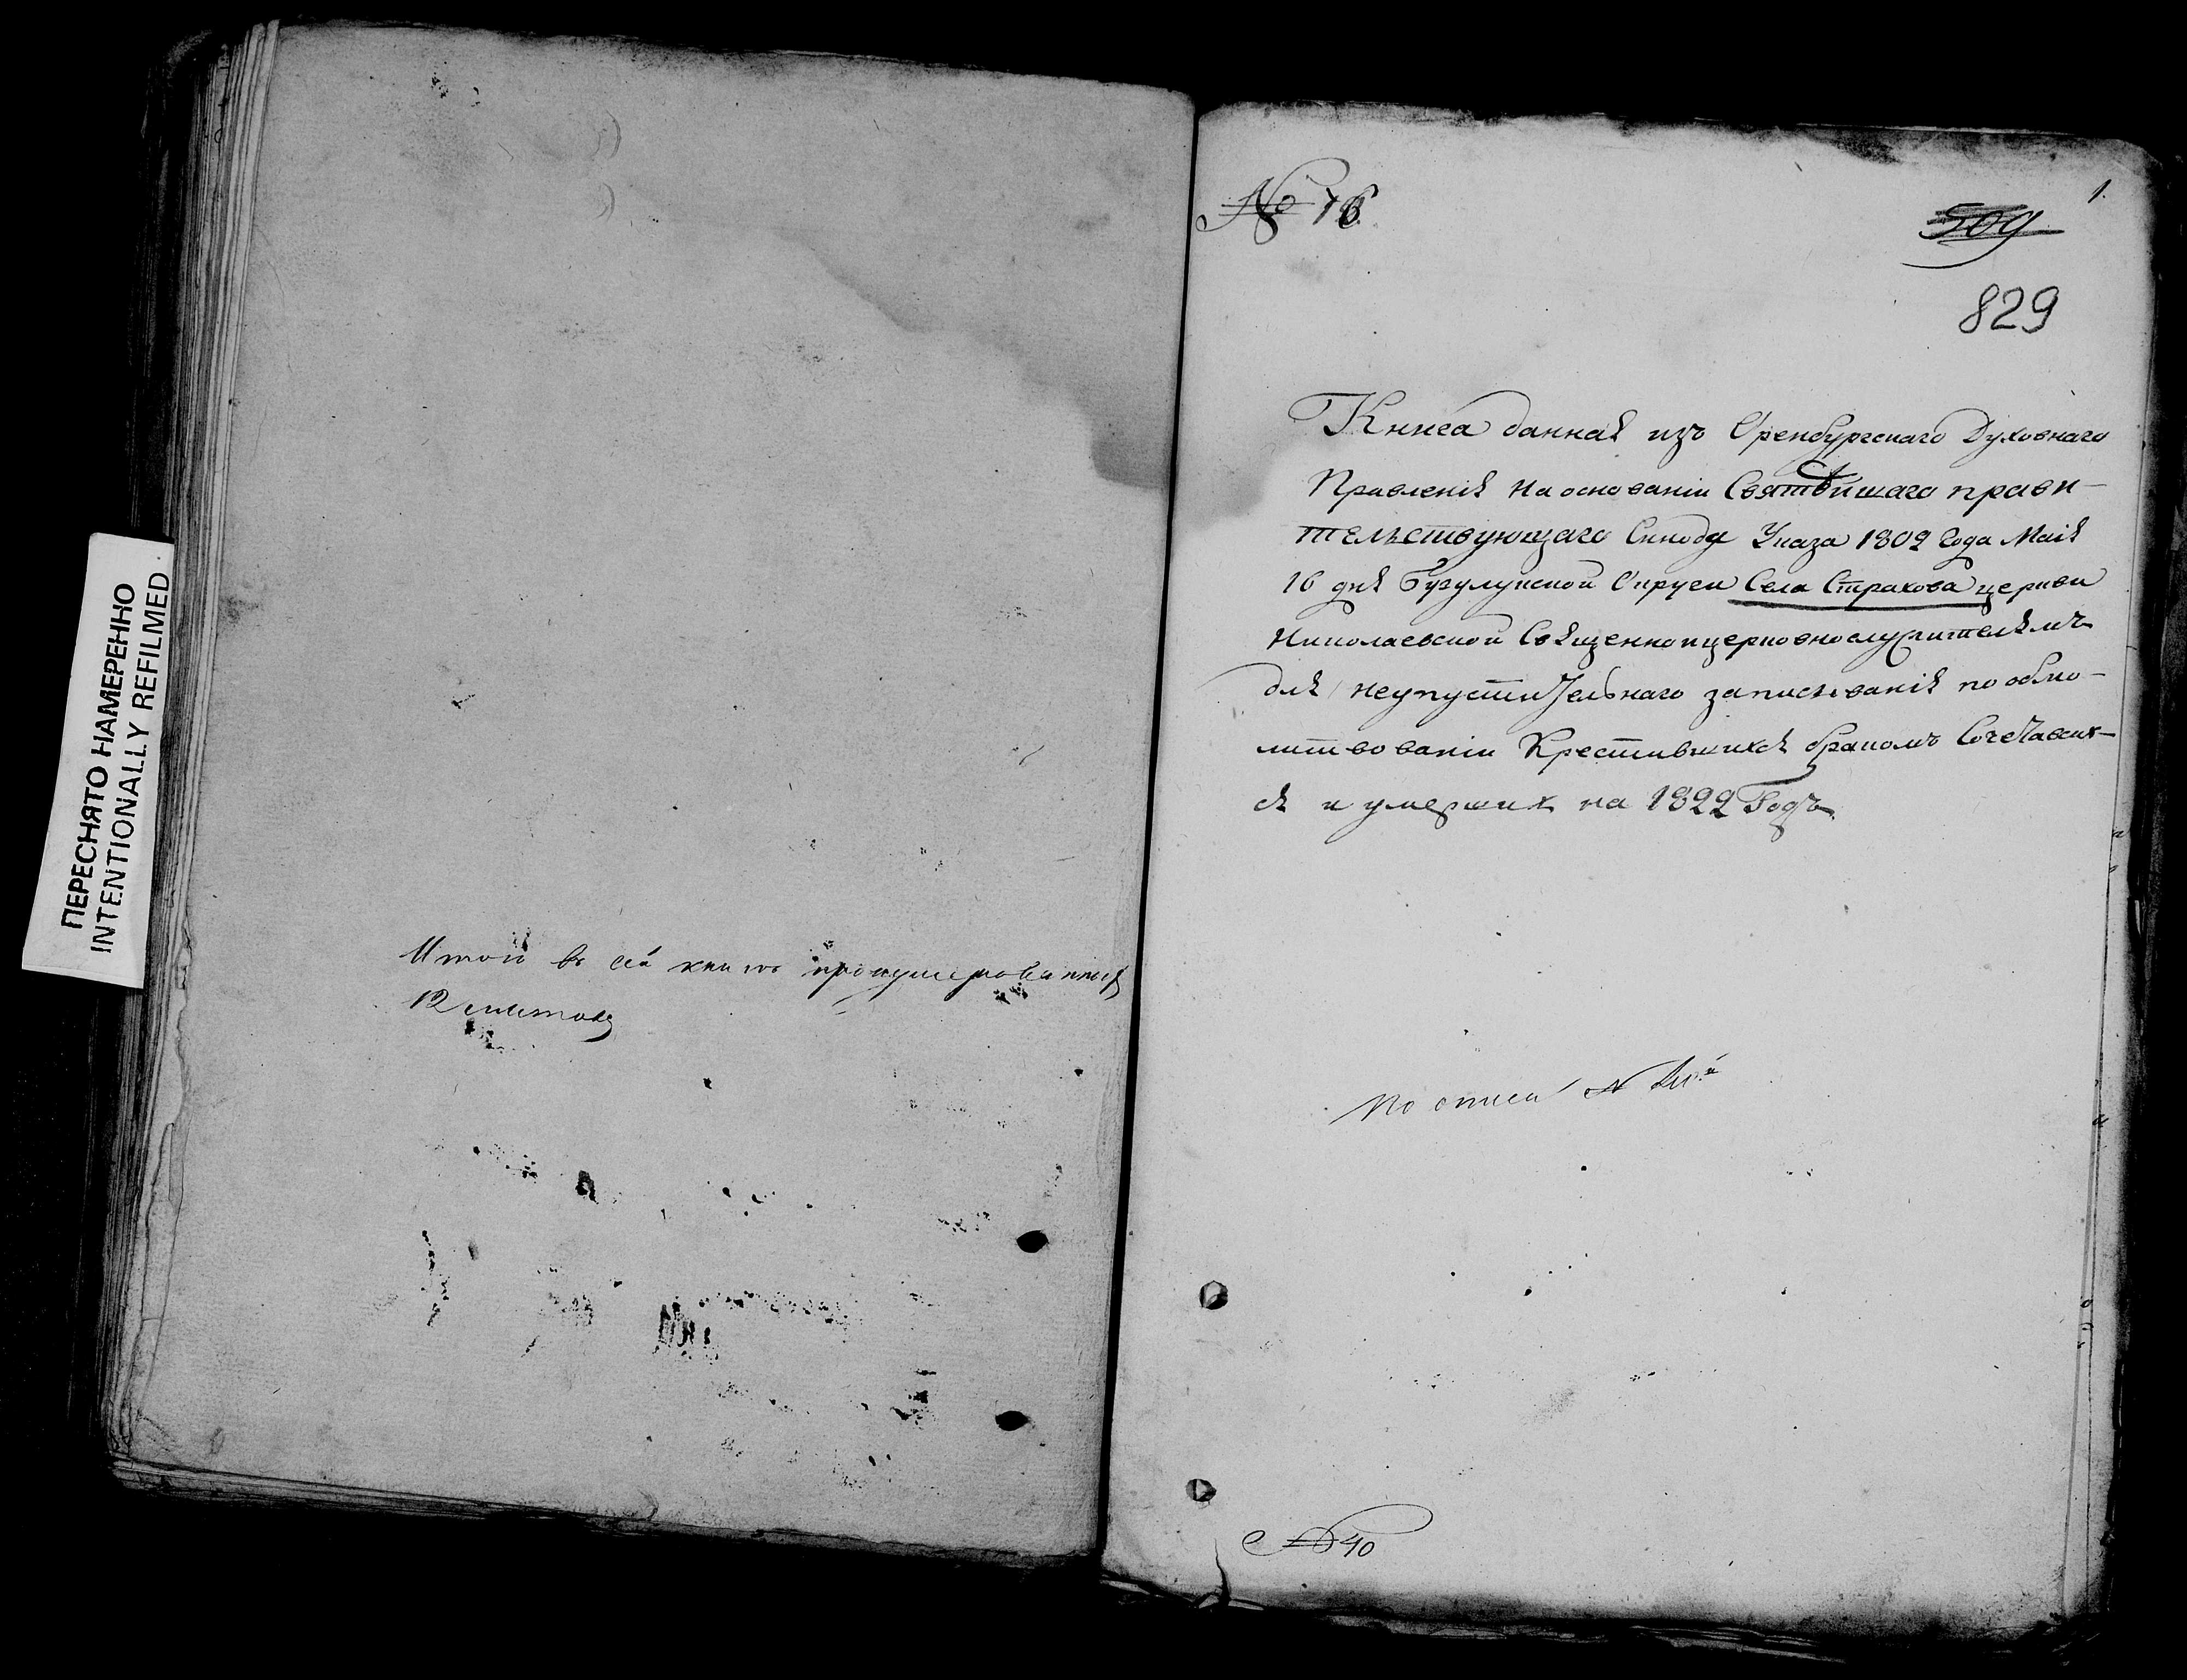 ПЕРЕСНЯТО НАМЕРЕННО
INTENTIONALLY REFILMED
Итого въ сей книге пронумерованных
12 листовъ
№ 76
1.
509
829
Книга данная изъ Оренбургскаго Духовнаго
Правленія на основаніи Святѣйшаго прави-
тельствующаго Синода Указа 1802 года Маія
16 дня Бугулукской Округи Села Страхова церкви
Николаевской Священноицерковнослужителямъ
для неупустительнаго записыванія по обмо-
литвованіи Крестившихся бракомъ Сочетавших-
ся и умерших на 1822 Годъ.
По описи №
№ 40